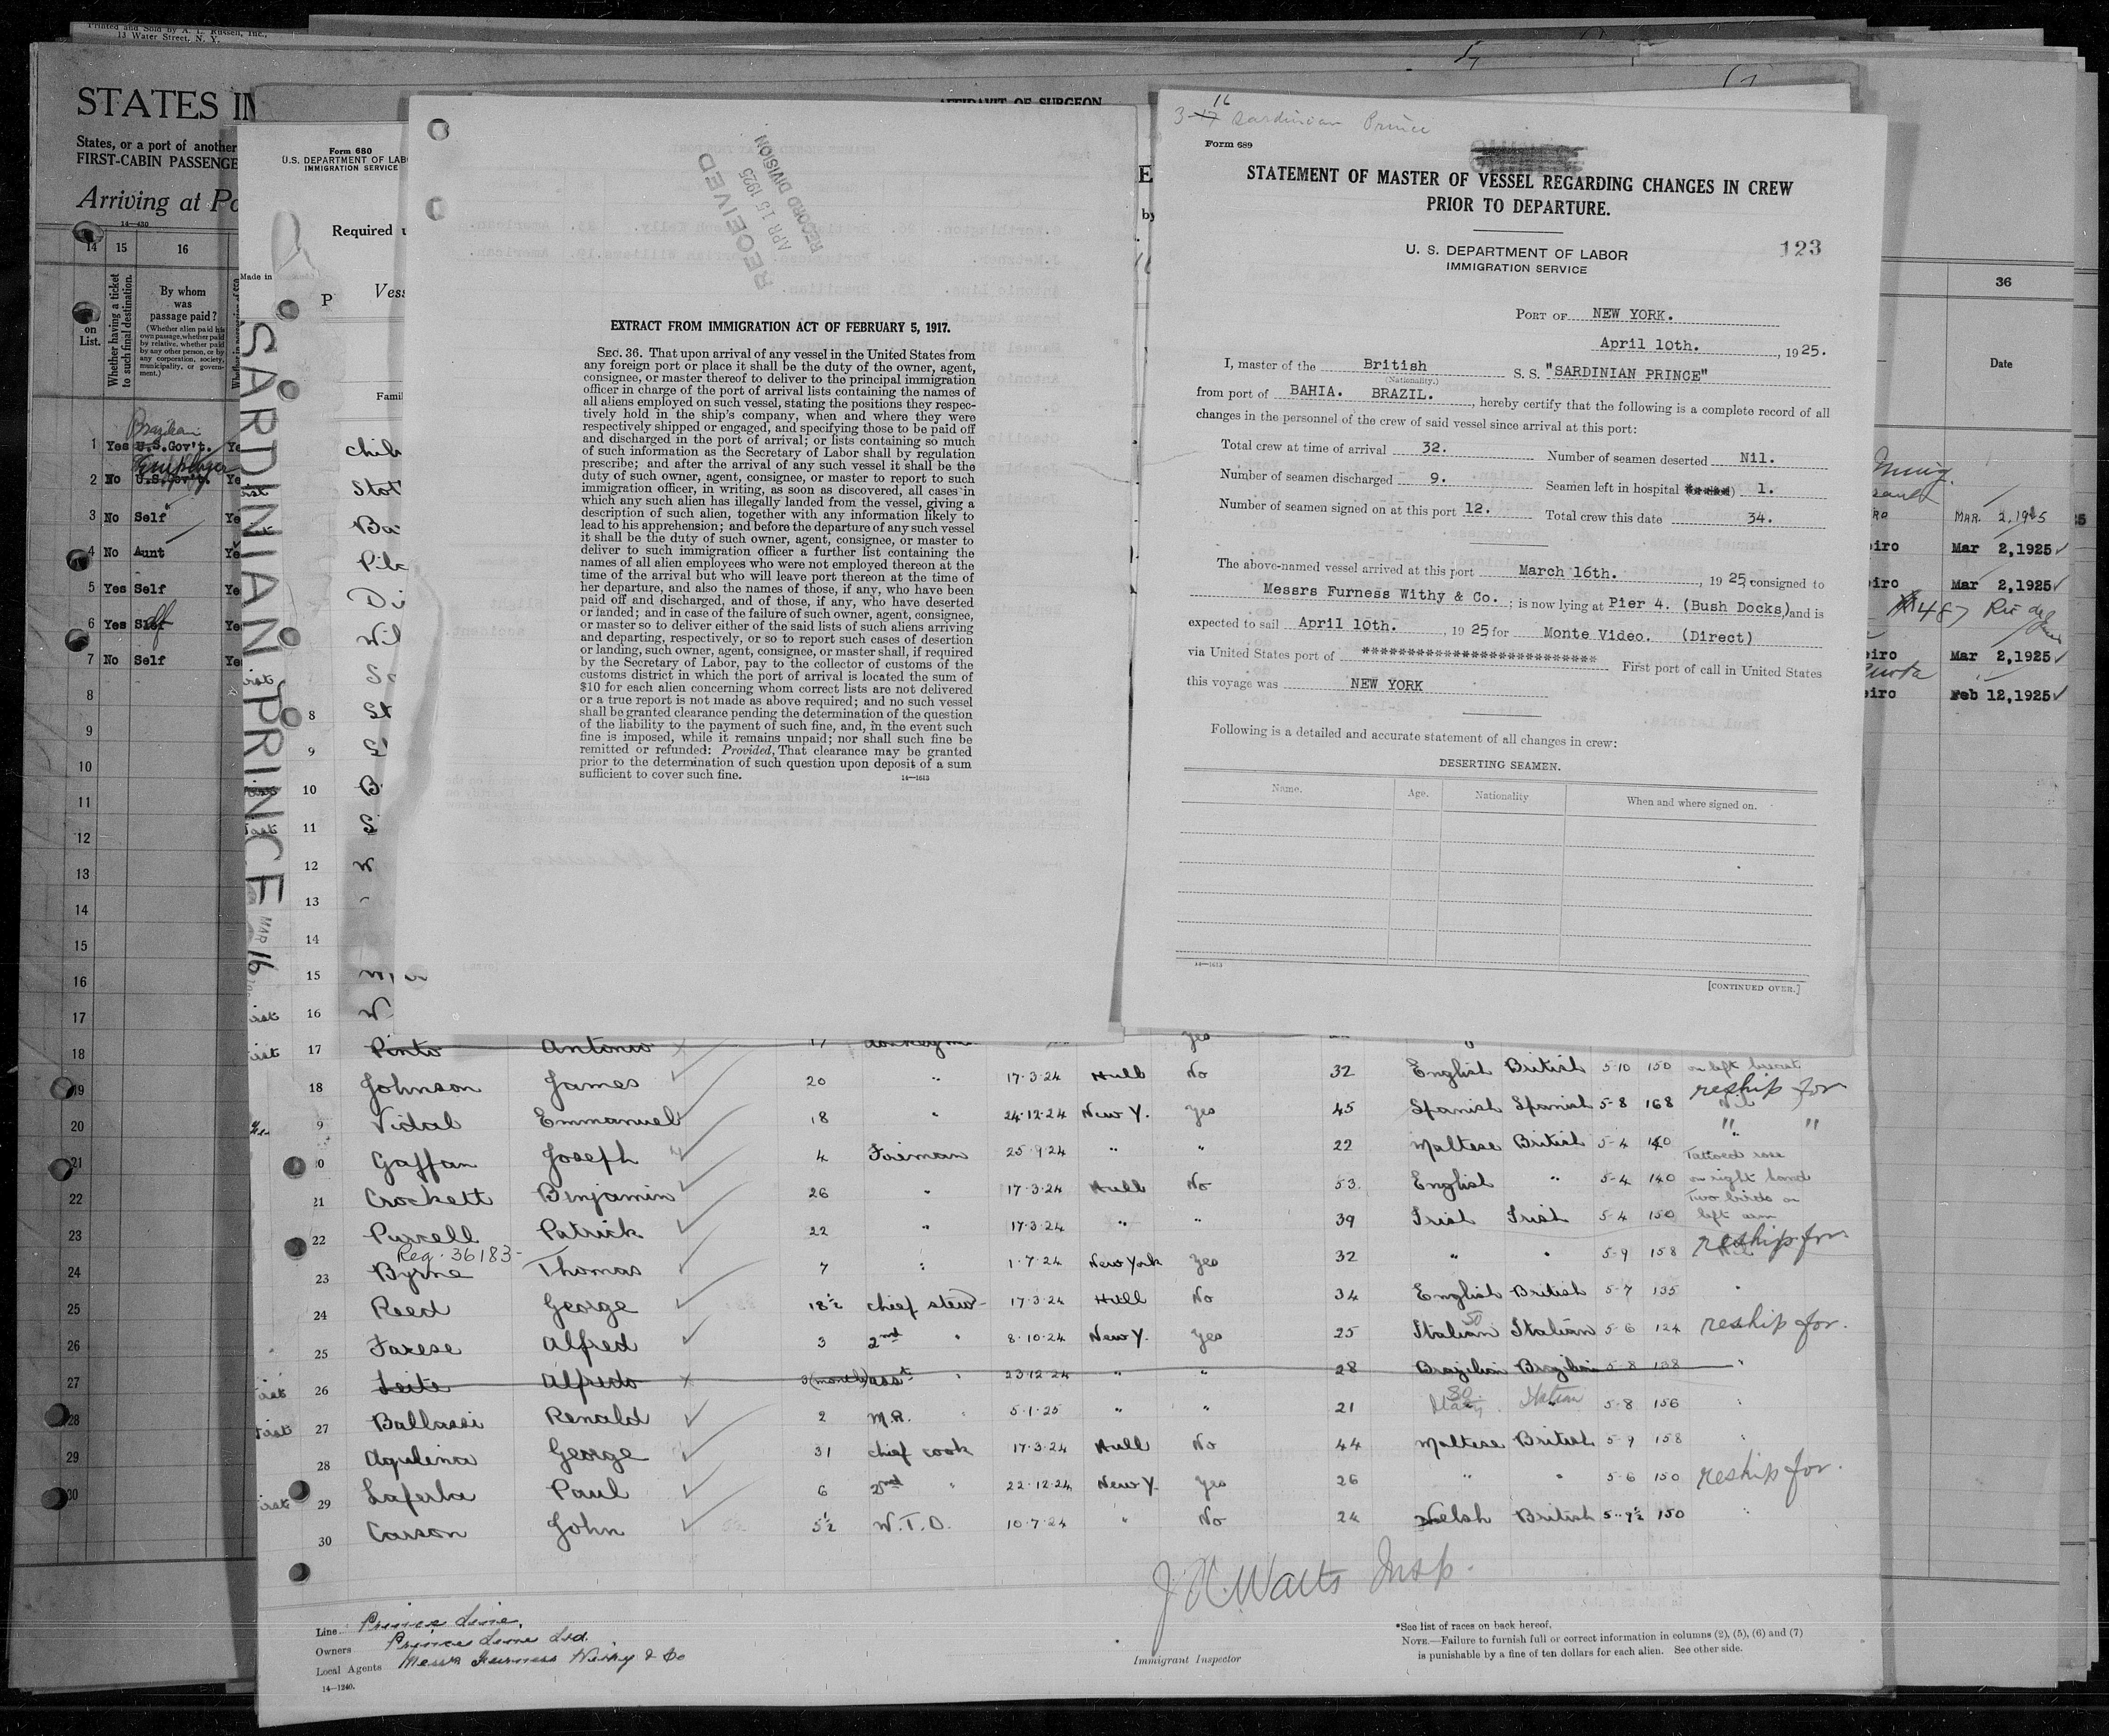 Printed and Sold by A. L. Russell, Inc.,
13 Water Street, N. Y.
STATES
States, or a port of another
FIRST-CABIN PASSENGE
Arriving at Po
14—430
14 15 16
on List.
Whether having a ticket to such final destination.
By whom was passage paid?
(Whether alien paid his own passage, whether paid by relative, whether paid by any other person, or by any corporation, society, municipality, or government.)
Brazilian
1 Yes U.S.Gov't. Ye
2 No U.S.Gov't. Ye
3 No Self Ye
4 No Aunt Ye
5 Yes Self Ye
6 Yes Self Ye
7 No Self Ye
8
9
10
11
12
13
14
15
16
17
18
19
20
21
22
23
24
25
26
27
28
29
30
Form 680
U.S. DEPARTMENT OF LAB
IMMIGRATION SERVICE
Required u
Made in
Vess
Famil
SARDINIAN PRINCE MAR 16
AFFIDAVIT OF SURGEON
RECEIVED
APR 15 1925
RECORD DIVISION
EXTRACT FROM IMMIGRATION ACT OF FEBRUARY 5, 1917.
SEC. 36. That upon arrival of any vessel in the United States from
any foreign port or place it shall be the duty of the owner, agent,
consignee, or master thereof to deliver to the principal immigration
officer in charge of the port of arrival lists containing the names of
all aliens employed on such vessel, stating the positions they respec-
tively hold in the ship's company, when and where they were
respectively shipped or engaged, and specifying those to be paid off
and discharged in the port of arrival; or lists containing so much
of such information as the Secretary of Labor shall by regulation
prescribe; and after the arrival of any such vessel it shall be the
duty of such owner, agent, consignee, or master to report to such
immigration officer, in writing, as soon as discovered, all cases in
which any such alien has illegally landed from the vessel, giving a
description of such alien, together with any information likely to
lead to his apprehension; and before the departure of any such vessel
it shall be the duty of such owner, agent, consignee, or master to
deliver to such immigration officer a further list containing the
names of all alien employees who were not employed thereon at the
time of the arrival but who will leave port thereon at the time of
her departure, and also the names of those, if any, who have been
paid off and discharged, and of those, if any, who have deserted
or landed; and in case of the failure of such owner, agent, consignee,
or master so to deliver either of the said lists of such aliens arriving
and departing, respectively, or so to report such cases of desertion
or landing, such owner, agent, consignee, or master shall, if required
by the Secretary of Labor, pay to the collector of customs of the
customs district in which the port of arrival is located the sum of
$10 for each alien concerning whom correct lists are not delivered
or a true report is not made as above required; and no such vessel
shall be granted clearance pending the determination of the question
of the liability to the payment of such fine, and, in the event such
fine is imposed, while it remains unpaid; nor shall such fine be
remitted or refunded: Provided, That clearance may be granted
prior to the determination of such question upon deposit of a sum
sufficient to cover such fine.
14—1613
3-17 16 Sardinian Prince
Form 689
STATEMENT OF MASTER OF VESSEL REGARDING CHANGES IN CREW
PRIOR TO DEPARTURE.
U. S. DEPARTMENT OF LABOR
IMMIGRATION SERVICE
123
PORT OF NEW YORK.
April 10th., 1925.
I, master of the British S. S. "SARDINIAN PRINCE"
(Nationality.)
from port of BAHIA. BRAZIL., hereby certify that the following is a complete record of all
changes in the personnel of the crew of said vessel since arrival at this port:
Total crew at time of arrival 32. Number of seamen deserted Nil.
Number of seamen discharged 9. Seamen left in hospital 1.
Number of seamen signed on at this port 12. Total crew this date 34.
The above-named vessel arrived at this port March 16th., 1925, consigned to
Messrs Furness Withy & Co.; is now lying at Pier 4. (Bush Docks) and is
expected to sail April 10th., 1925 for Monte Video. (Direct)
via United States port of ************************* First port of call in United States
this voyage was NEW YORK
Following is a detailed and accurate statement of all changes in crew:
DESERTING SEAMEN.
Name. Age. Nationality When and where signed on.
14—1613
[CONTINUED OVER.]
36
Date
MAR. 2, 1925
eiro Mar 2,1925
eiro Mar 2,1925
487 Rio de
eiro Mar 2,1925
eiro Feb 12,1925
8 St
9
10 B
11 S
12 W
13
14
15
16 W
17 Pinto Antonio 17 donkeym yes
18 Johnson James 20 " 17.3.24 Hull No 32 English British 5-10 150 on left breast
reship for
19 Vidal Emmanuel 18 " 24.12.24 New Y. yes 45 Spanish Spanish 5-8 168 Nil
20 Gaffan Joseph 4 Fireman 25.9.24 " " 22 Maltese British 5-4 140 " "
21 Crockett Binjamin 26 " 17.3.24 Hull No 53 English " 5-4 140 Tattoed rose on right hand
22 Purcell Patrick 22 " 17.3.24 " " 39 Irish Irish 5-4 150 Two birds on left arm
Reg. 36183-
23 Byrne Thomas 7 " 1.7.24 New York yes 32 " " 5-9 158 reship for
24 Reed George 18½ chief stew 17.3.24 Hull No 34 English British 5-7 135 "
25 Farese Alfred 3 2nd " 8.10.24 New Y. yes 25 Italian SO Italian 5-6 124 reship for.
26 Leite Alfredo 3(months) asst. " 23.12.24 " " 28 Brazilian Brazilian 5-8 138 "
27 Ballassi Renald 2 M.R. " 5.1.25 " " 21 Italian 5-8 156 "
28 Aquilina George 31 chief cook 17.3.24 Hull No 44 Maltese British 5-9 158 "
29 Laferla Paul 6 2nd " 22.12.24 New Y. yes 26 " " 5-6 150 reship for.
30 Carson John 5½ W.T.O. 10.7.24 " No 24 Welsh British 5-9½ 150 "
Line Prince Line.
Owners Prince Line Ltd.
Local Agents Messrs Furness Withy & Co
14—1240.
J C Watts Insp.
Immigrant Inspector
*See list of races on back hereof.
NOTE.—Failure to furnish full or correct information in columns (2), (5), (6) and (7)
is punishable by a fine of ten dollars for each alien. See other side.